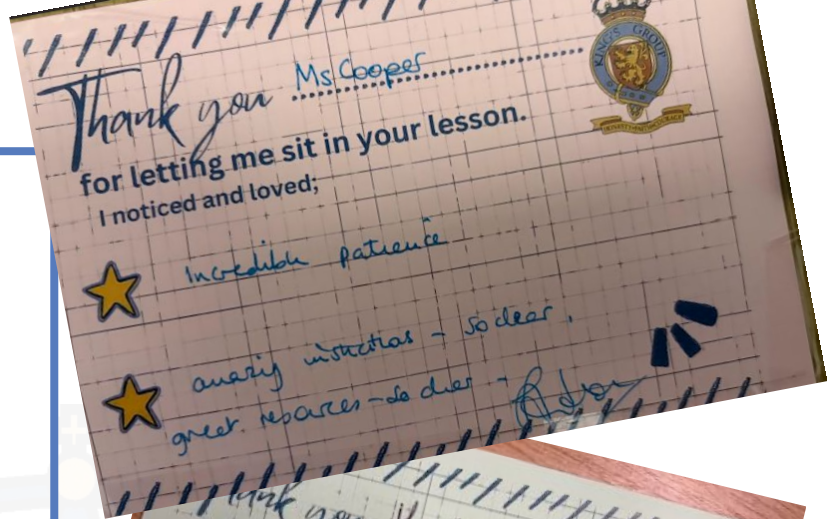 Thank you Ms Cooper
KING'S GROUP
for letting me sit in your lesson.
I noticed and loved;
Incredible patience
amazing instructions - so clear.
great resources - so clear -
Thank you